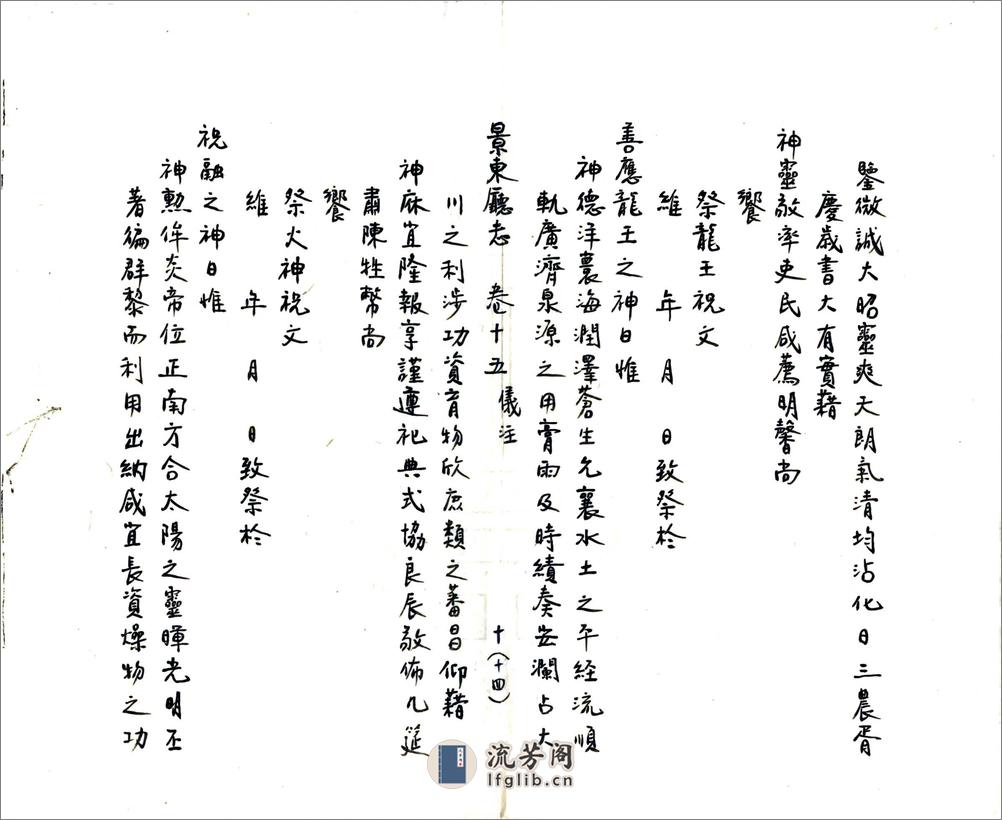 鑒微誠大昭靈爽天朗氣清均沾化日三農胥
慶歲書大有實藉
神靈敬率吏民咸薦明馨尚
饗
祭龍王祝文
維 年 月 日致祭於
善應龍王之神曰惟
神德洋寰海潤澤蒼生允襄水土之平經流順
軌廣濟泉源之用膏雨及時績奏安瀾占大
景東廳志 卷十五 儀注 十(十四)
川之利涉功資育物欣庶類之蕃昌仰藉
神庥宜隆報享謹遵祀典式協良辰敬佈几筵
肅陳牲幣尚
饗
祭火神祝文
維 年 月 日致祭於
祝融之神曰惟
神勳侔炎帝位正南方合太陽之靈暉光明丕
著徧群黎而利用出納咸宜長資燥物之功
流芳阁
lfglib.cn